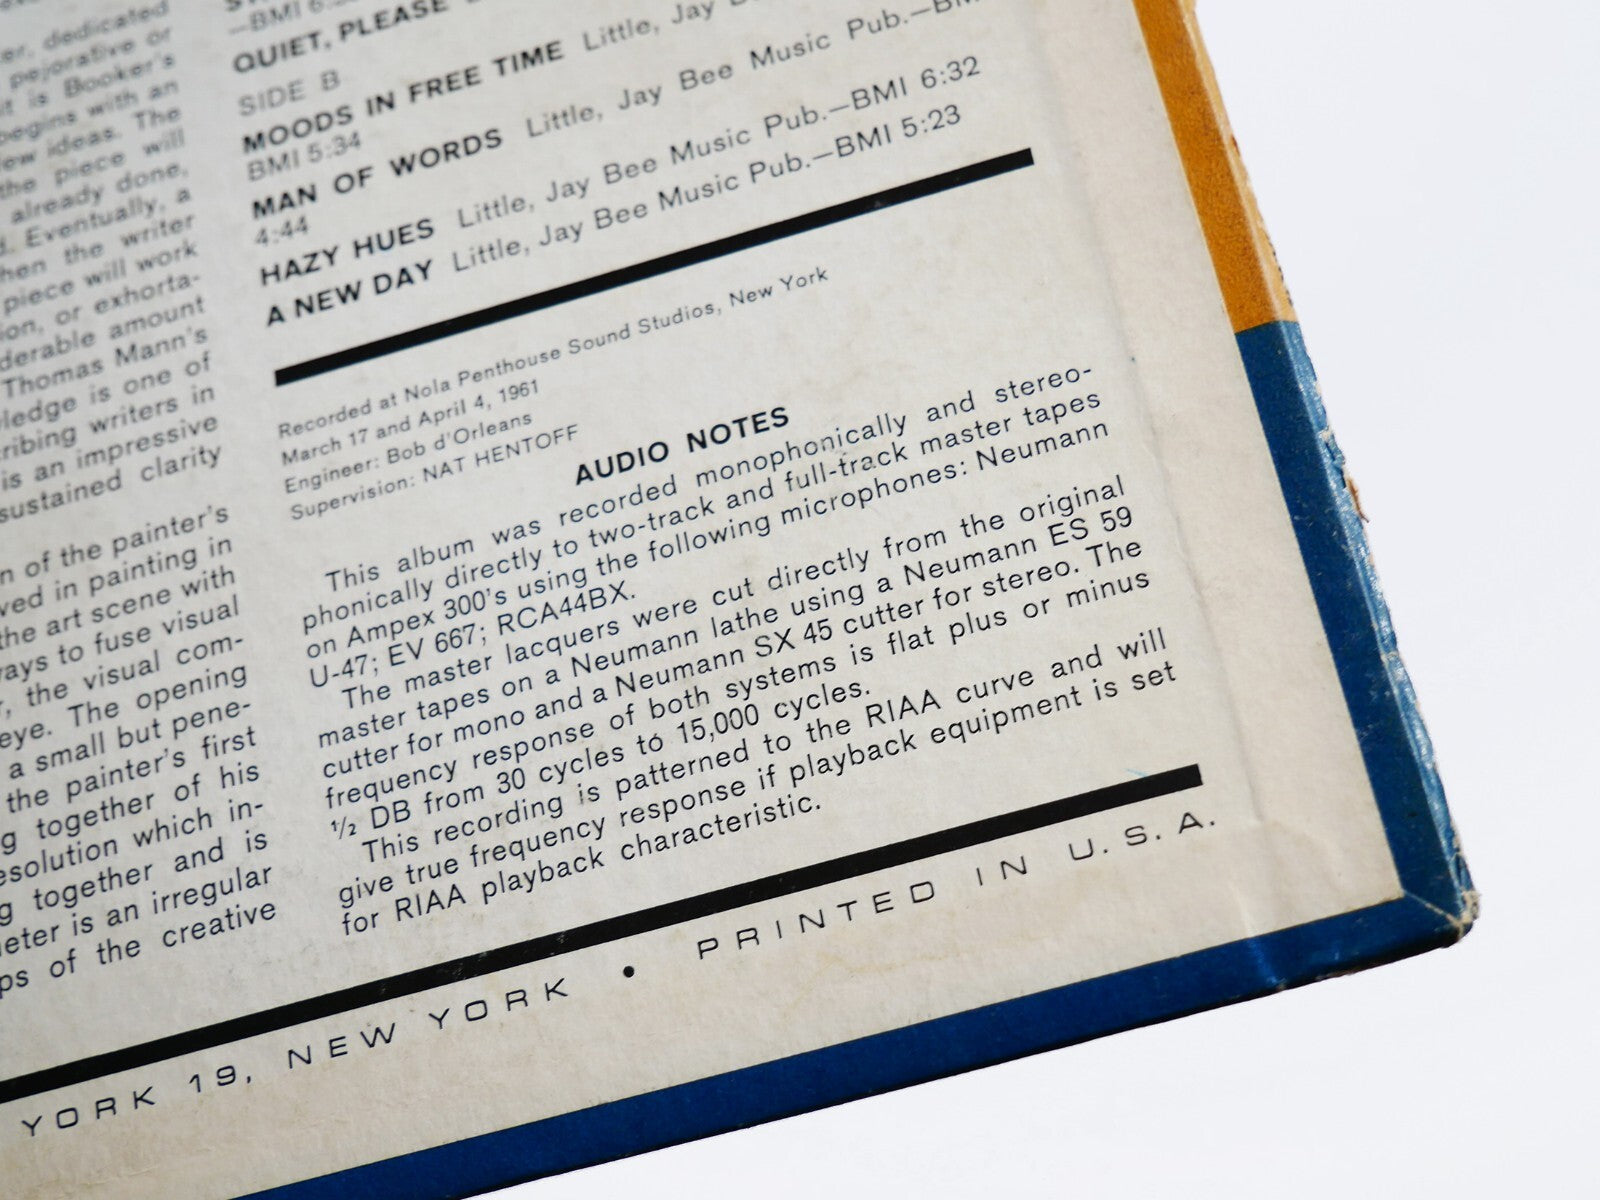 er, dedicated
pejorative or
it is Booker's
begins with an
ew ideas. The
the piece will
already done,
d. Eventually, a
hen the writer
piece will work
ion, or exhorta-
derable amount
Thomas Mann's
ledge is one of
cribing writers in
is an impressive
sustained clarity
n of the painter's
ved in painting in
the art scene with
ways to fuse visual
r, the visual com-
eye. The opening
a small but pene-
the painter's first
g together of his
esolution which in-
g together and is
eter is an irregular
ps of the creative
—BMI 6:
QUIET, PLEASE
SIDE B
MOODS IN FREE TIME Little, Jay Bee Music Pub.—
BMI 5:34
MAN OF WORDS Little, Jay Bee Music Pub.—BMI
4:44
HAZY HUES Little, Jay Bee Music Pub.—BMI 6:32
A NEW DAY Little, Jay Bee Music Pub.—BMI 5:23
Recorded at Nola Penthouse Sound Studios, New York
March 17 and April 4, 1961
Engineer: Bob d'Orleans
Supervision: NAT HENTOFF
AUDIO NOTES
This album was recorded monophonically and stereo-
phonically directly to two-track and full-track master tapes
on Ampex 300's using the following microphones: Neumann
U-47; EV 667; RCA44BX.
The master lacquers were cut directly from the original
master tapes on a Neumann lathe using a Neumann ES 59
cutter for mono and a Neumann SX 45 cutter for stereo. The
frequency response of both systems is flat plus or minus
½ DB from 30 cycles to 15,000 cycles.
This recording is patterned to the RIAA curve and will
give true frequency response if playback equipment is set
for RIAA playback characteristic.
YORK 19, NEW YORK • PRINTED IN U.S.A.